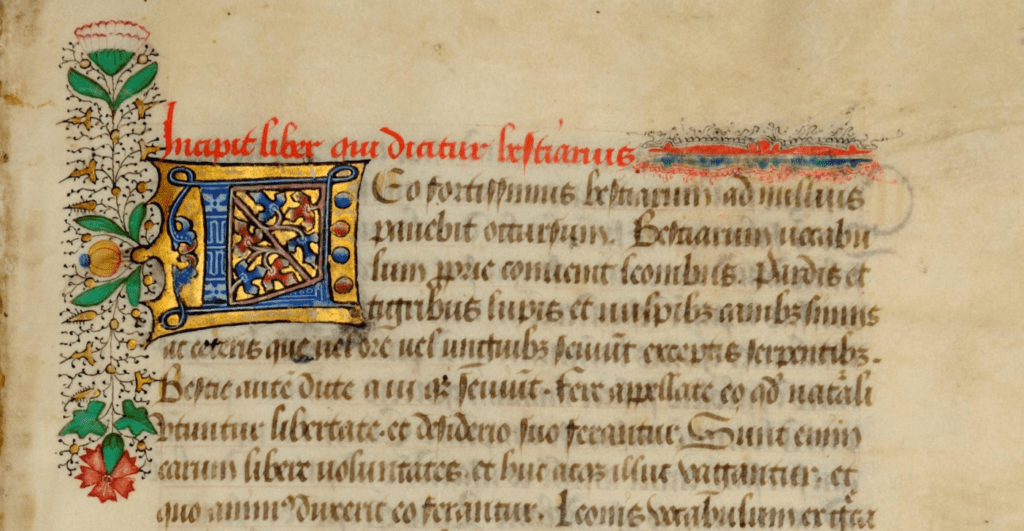 Incipit liber qui dicitur bestiarius
LEo fortissimus bestiarum ad nullius
pauebit occursum. Bestiarum uocabu
lum ꝓprie conuenit leonibus. Pardis et
tigribus lupis et uulpibꝫ canibꝫ simiis
ac ceteris que uel ore uel unguibꝫ seuiūt exceptis serpentibꝫ.
Bestie autē dicte a ui qͣ seuiūt. Fere appellate eo qđ natᵃli
vtuntur libertate. et desiderio suo ferantur. Sunt enim
earum libere uoluntates. et huc atqꝫ illuc vagantur. et
quo animꝰ duxerit eo ferantur. Leonis vocabulum ex gᵃca